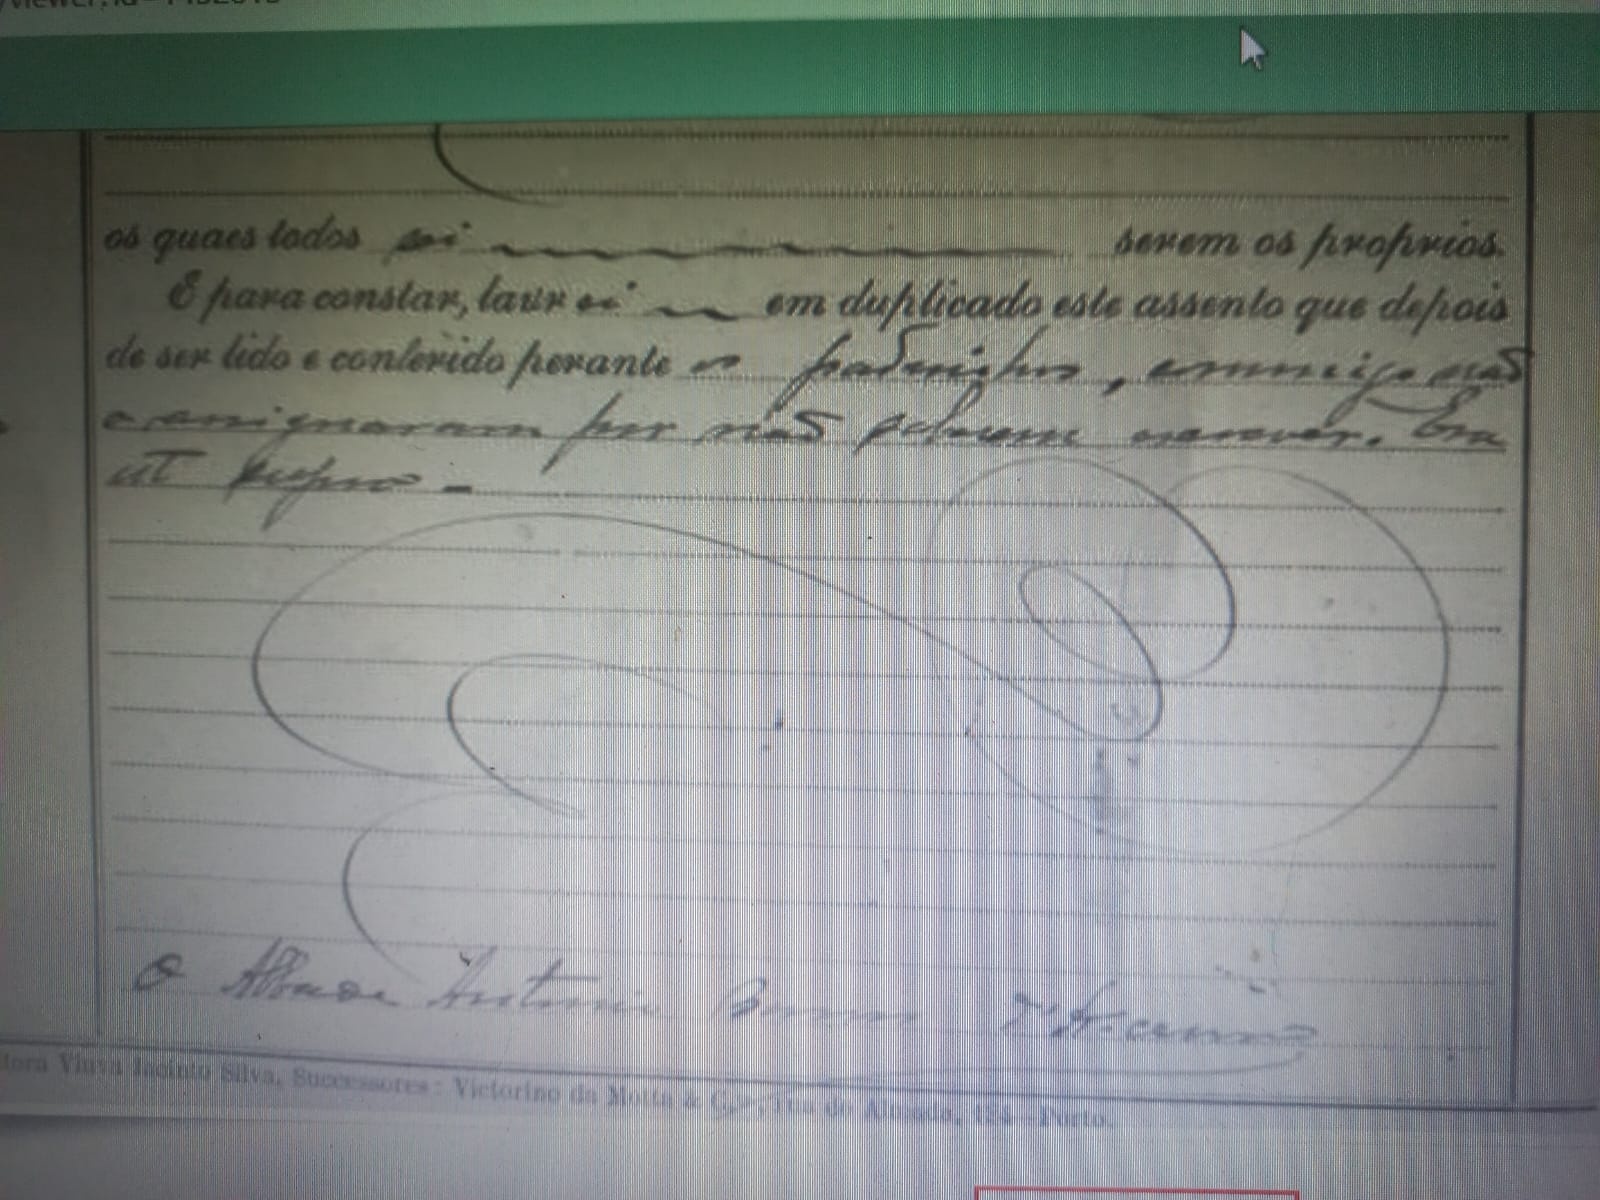 os quaes todos sei serem os proprios.
E para constar, lavrei em duplicado este assento que depois
de ser lido e conferido perante os padrinhos, commigo não
o assignaram por não saberem escrever. Era
ut supra. -
O Abbade Antonio
Viuva Jacinto Silva, Successores: Victorino da Motta & C.ª, rua do Almada, Porto.